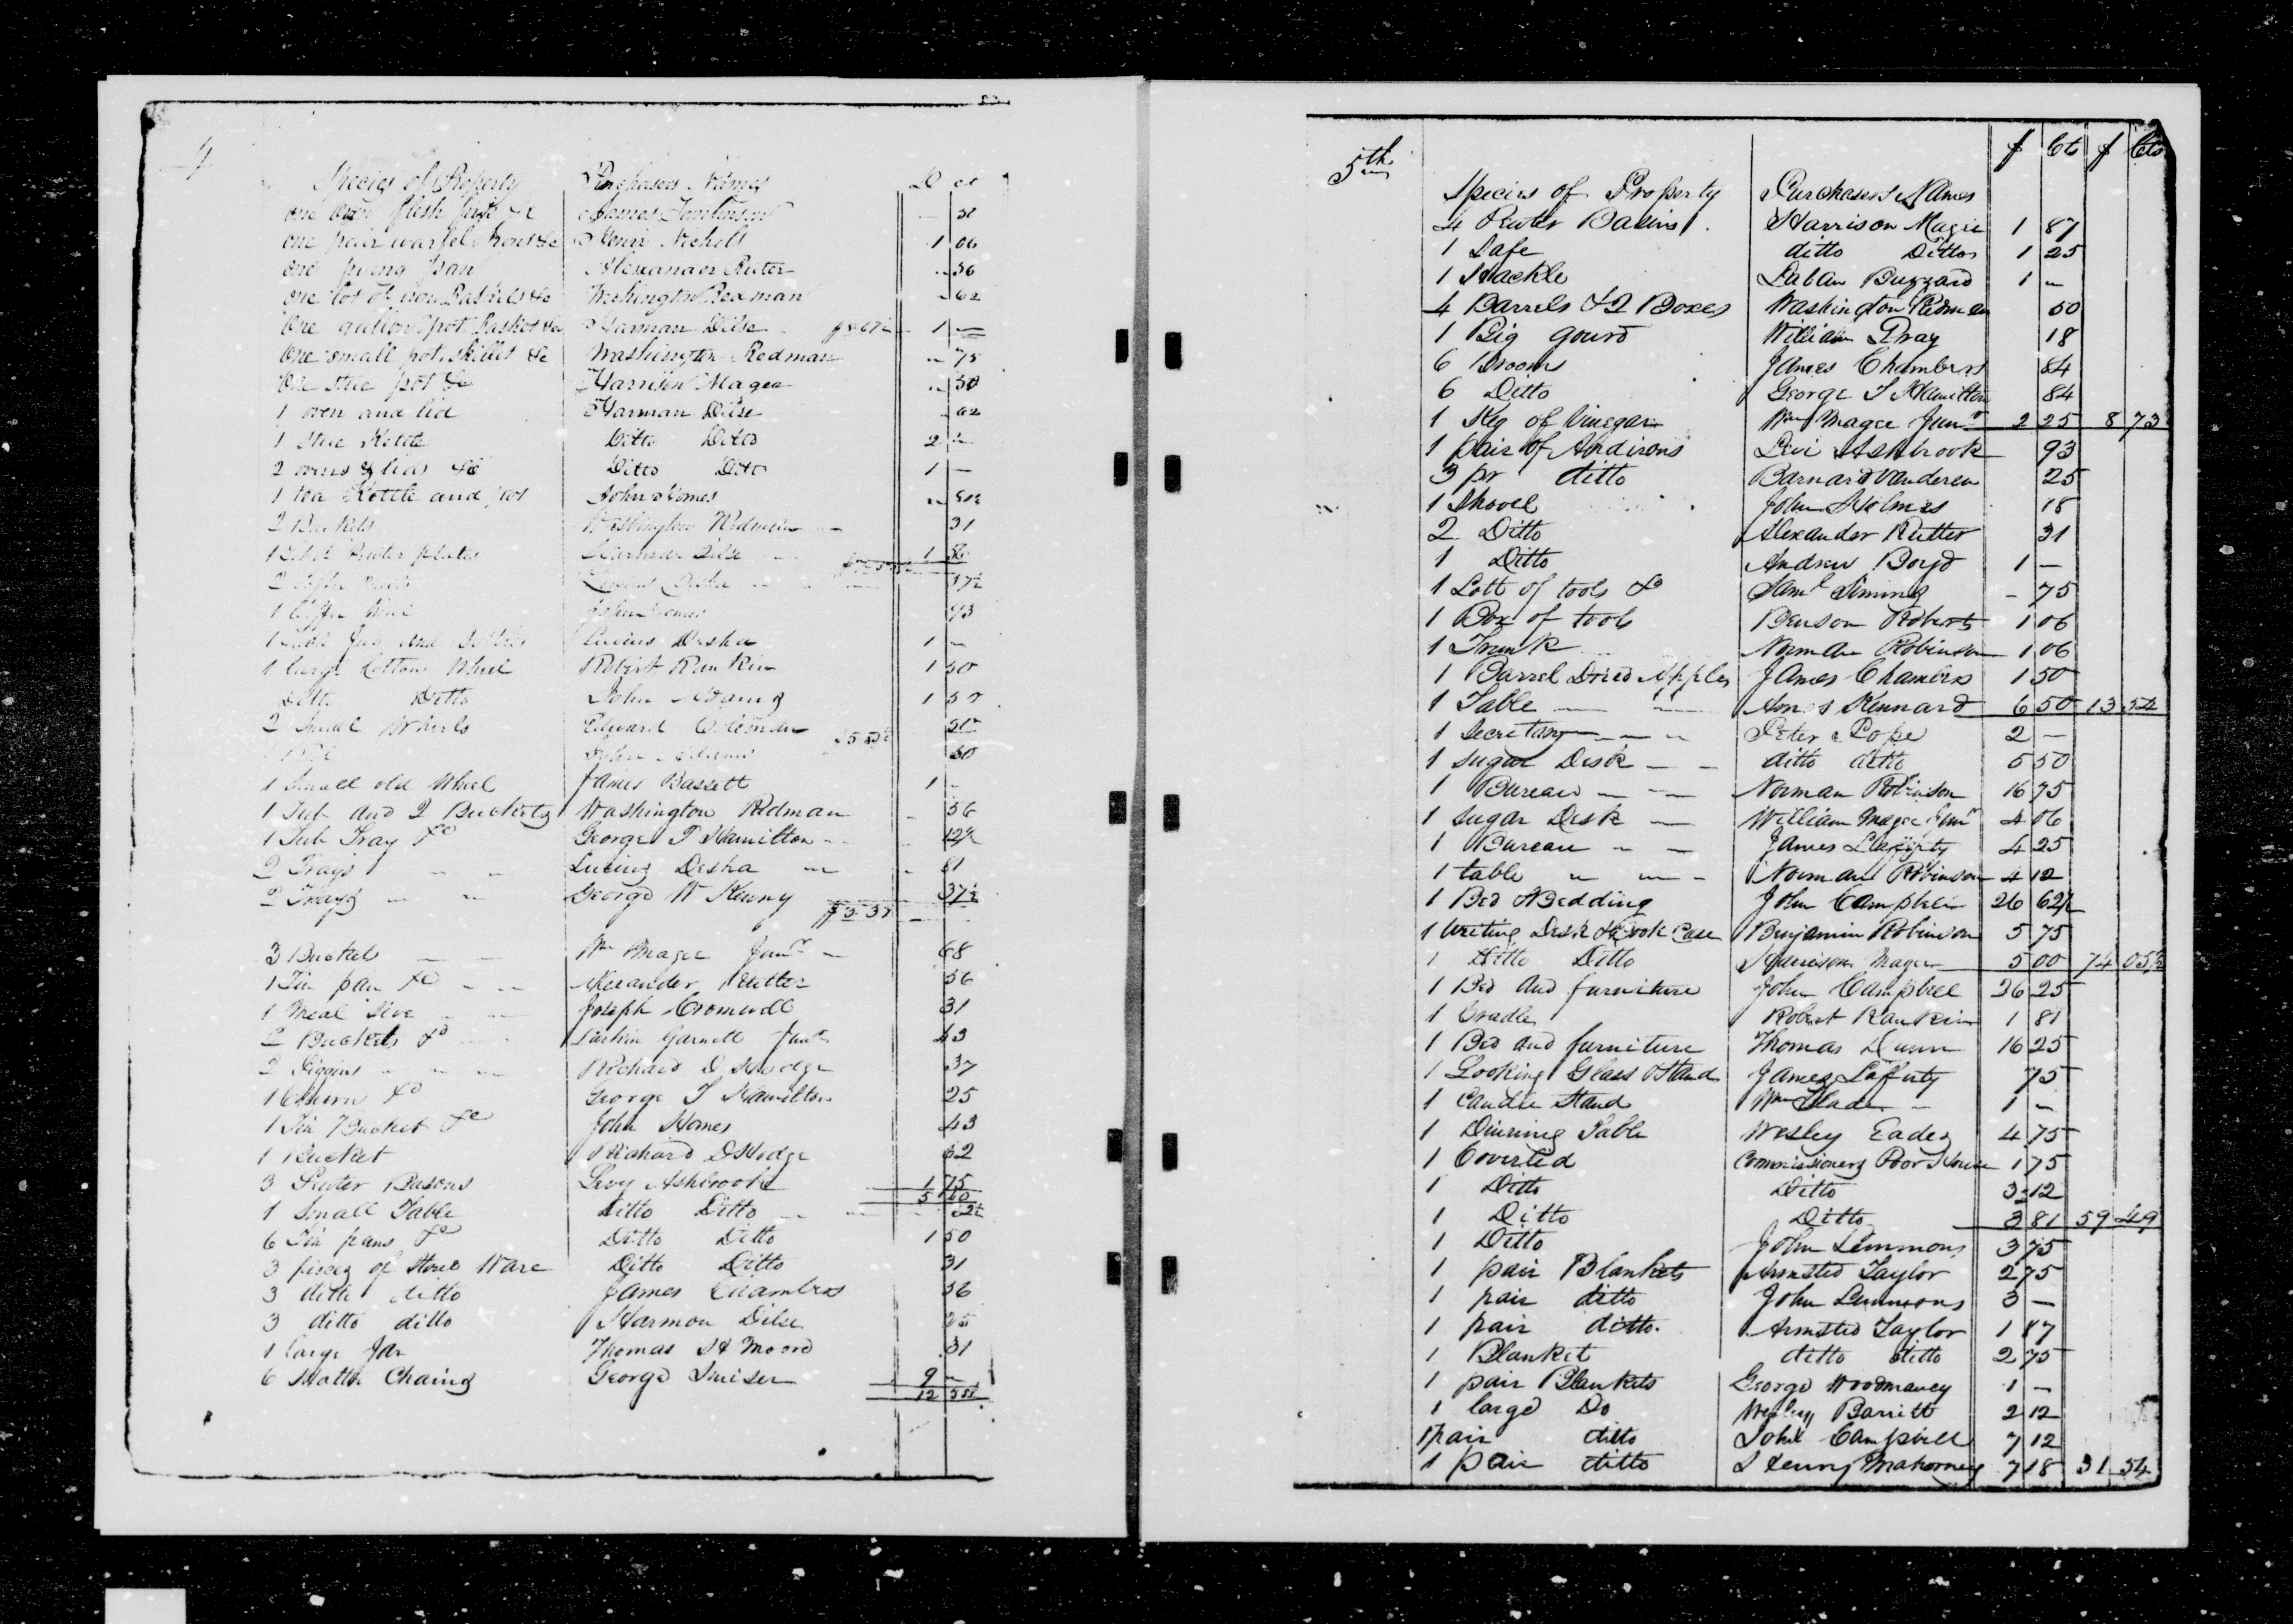 4
Species of Property Purchasers Names D ct
one oven flesh fork &c James 31
one pair waffel Irons &c Henri Nichols 1 06
one pan Alexander Ruter 56
one lot of &c Washington Redman 62
One gallon pot Basket &c Harman Dilse 1 —
One small pot, skillet &c Washington Redman 75
One stue pot &c Harrison Magee 50
1 oven and lid Harman Dilse 62
1 Stue Kettle Ditto Ditto 2 —
2 ovens & lids &c Ditto Ditto 1 —
1 tea Kettle and pot John Homes
2 Buckets Washington Redman 31
Puter plates Harman Dilse 1
2 37½
1 John Homes 93
1 Jug and Lucius Desha 1 —
1 large Cotton Wheel Robert Rankin 1 50
Ditto Ditto John Adams 1 50
2 Small Wheels Edward Coleman
John Adams 50
1 Small old Wheel James Bassett 1 —
1 Tub and 2 Bucketts Washington Redman 56
1 Tub Tray &c George T Hamilton 12½
2 Trays Lucius Desha 81
2 Trays George W Kenny 37½
3 Buckets Wm Magee Junr 68
1 Tin pan &c Alexander Rutter 56
1 Meal Sive Joseph Cromwell 31
2 Buckets &c Larkin Garnett Junr 43
2 Piggins Richard D Hodge 37
1 Churn &c George T Hamilton 25
1 Tin Bucket &c John Homes 43
1 Bucket Richard D Hodge 62
3 Puter Basons Levy Ashbrook 1 75
1 Small Table Ditto Ditto
6 Tin pans &c Ditto Ditto 1 50
3 pieces of Stone Ware Ditto Ditto 31
3 ditto ditto James Chambers 56
3 ditto ditto Harmon Dilse 25
1 large Jar Thomas H Moore 31
6 Matte Chains George Smiser 9 —
12
5th $ Cts $ Cts
Species of Property Purchasers Names
4 Puter Basins Harrison Magee 1 87
1 Safe ditto Ditto 1 25
1 Hackle Laban Buzzard 1 —
4 Barrels & 2 Boxes Washington Redman 50
1 Big gourd William Pray 18
6 Brooms James Chambers 84
6 Ditto George T Hamilton 84
1 Keg of Vinegar Wm Magee Junr 2 25 8 73
1 pair of Andirons Levi Ashbrook 93
3 pr ditto Barnard Vanderen 25
1 Shovel John Holmes 18
2 Ditto Alexander Rutter 31
1 Ditto Andrew Boyd 1 —
1 Lott of tools &c Saml 75
1 Box of tools Benson Roberts 1 06
1 Trunk Norman Robinson 1 06
1 Barrel Dried Apples James Chambers 1 50
1 Table Amos Kennard 6 50 13 54
1 Secretary Peter Pope 2 —
1 sugar Desk ditto ditto 5 50
1 Bureau Norman Robinson 16 75
1 sugar Desk William Magee Junr 4 06
1 Bureau James Lafferty 4 25
1 table Norman Robinson 4 12
1 Bed & Bedding John Campbell 26 62½
1 Writing Desk & Book Case Benjamin Robinson 5 75
1 Ditto Ditto Harrison Magee 5 00 74 05½
1 Bed and furniture John Campbell 26 25
1 Cradle Robert Rankin 1 81
1 Bed and furniture Thomas Dunn 16 25
1 Looking Glass & Stand James Laferty 75
1 Candle Stand Wm Slade 1 —
1 Dinining Table Wesley Eades 4 75
1 Coverlid Commissioners Poor House 1 75
1 Ditto Ditto 3 12
1 Ditto Ditto 3 81 59 49
1 Ditto John Lemmons 3 75
1 pair Blankets Armsted Taylor 2 75
1 pair ditto John Lemmons 3 —
1 pair ditto. Armsted Taylor 1 87
1 Blanket ditto ditto 2 75
1 pair Blankets George Woodmancy 1 —
1 large Do Wesley Barritt 2 12
1 pair ditto John Campbell 7 12
1 pair ditto Henry Mahorney 7 18 31 54